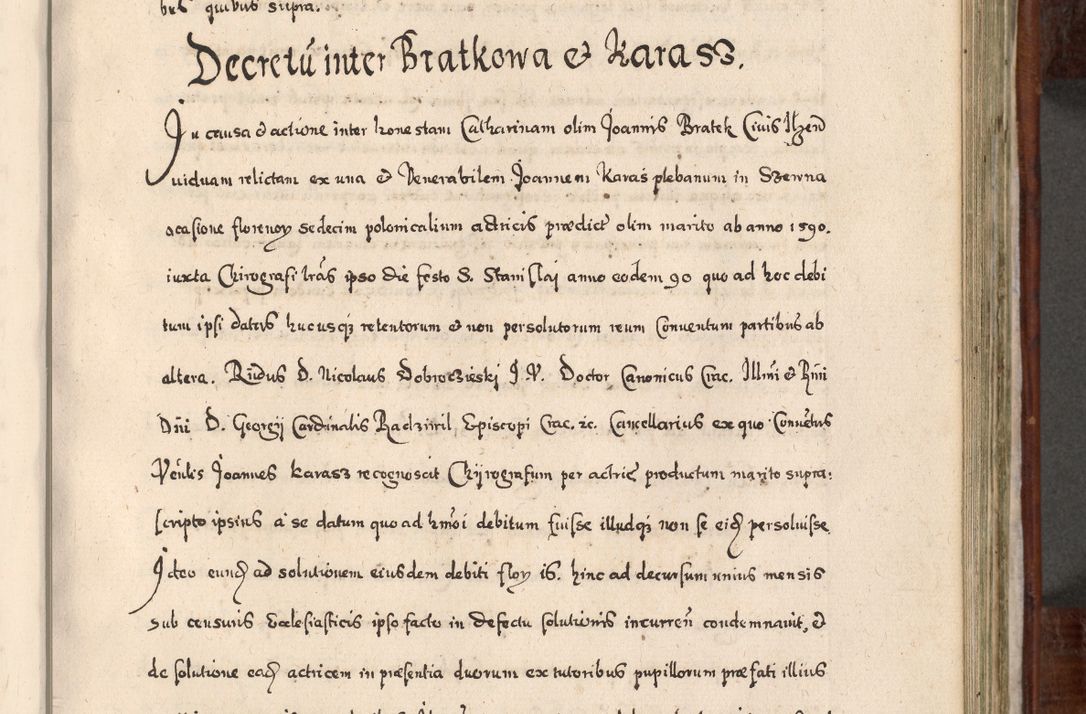 bus quibus supra.
Decretū inter Bratkowa & Karasz.
In causa & actione inter honestam Catharinam olim Joannis Bratek Ciuis Ilzen̄
uiduam relictam ex una & Venerabilem Joannem Karas plebanum in Dzewna
ocasione florenoꝝ sedecim polonicalium actricis prædict̄ olim marito ab anno 1590.
iuxta Chirografi lr̄as ipso die festo S. Stanislai anno eodem 90 quo ad hoc debi
tum ipsi datus hucusqꝫ retentorum & non persolutorum reum Conuentum partibus ab
altera. Rn̄dus D. Nicolaus Dobrocieski J. V. Doctor Canonicus Crac. Illm̄i & Rm̄i
Dn̄i D. Georgij Cardinalis Radziwil Episcopi Crac. &c. Cancellarius ex quo Conuētus
Venl̄is Joannes Karasz recognoscit Chyrografum per actric̄ productum marito supra:
scripto ipsius a se datum quo ad hm̄oi debitum fuisse illudqꝫ non se eid̄ persoluisse
Ideo eund̄ ad solutionem eiusdem debiti floꝝ 16. hinc ad decursum unius mensis
sub censuris Ecclesiasticis ipso facto in defectu solutionis incurren̄ condemnauit, &
de solutione ead̄ actricem in præsentia duorum ex tutoribus pupillorum præfati illius